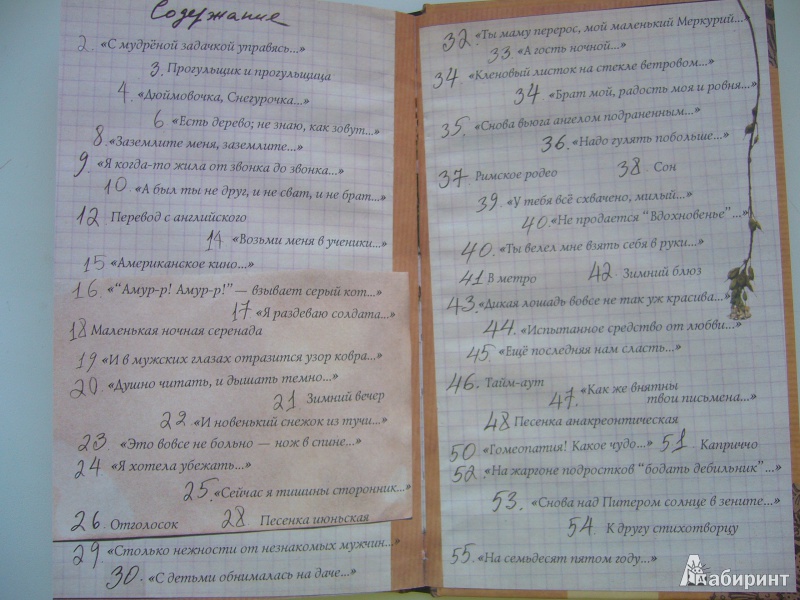 Содержание
2. «С мудрёной задачкой управясь...»
3. Прогульщик и прогульщица
4. «Дюймовочка, Снегурочка...»
6 «Есть дерево; не знаю, как зовут...»
8. «Заземлите меня, заземлите...»
9. «Я когда-то жила от звонка до звонка...»
10. «А был ты не друг, и не сват, и не брат...»
12 Перевод с английского
14 «Возьми меня в ученики...»
15 «Американское кино...»
16 «“Амур-р! Амур-р!” — взывает серый кот...»
17 «Я раздеваю солдата...»
18 Маленькая ночная серенада
19 «И в мужских глазах отразится узор ковра...»
20. «Душно читать, и дышать темно...»
21 Зимний вечер
22. «И новенький снежок из тучи...»
23. «Это вовсе не больно — нож в спине...»
24 «Я хотела убежать...»
25. «Сейчас я тишины сторонник...»
26. Отголосок 28. Песенка июньская
29. «Столько нежности от незнакомых мужчин...»
30. «С детьми обнималась на даче...»
32. «Ты маму перерос, мой маленький Меркурий...»
33. «А гость ночной...»
34. «Кленовый листок на стекле ветровом...»
34 «Брат мой, радость моя и ровня...»
35. «Снова вьюга ангелом подраненным...»
36. «Надо гулять побольше...»
37. Римское родео 38. Сон
39. «У тебя всё схвачено, милый...»
40. «Не продается “Вдохновенье”...»
40. «Ты велел мне взять себя в руки...»
41 В метро 42. Зимний блюз
43. «Дикая лошадь вовсе не так уж красива...»
44. «Испытанное средство от любви...»
45 «Ещё последняя нам сласть...»
46. Тайм-аут
47. «Как же внятны
твои письмена...»
48 Песенка анакреонтическая
50. «Гомеопатия! Какое чудо...» 51. Каприччо
52. «На жаргоне подростков “бодать дебильник”...»
53. «Снова над Питером солнце в зените...»
54. К другу стихотворцу
55. «На семьдесят пятом году...»
Лабиринт